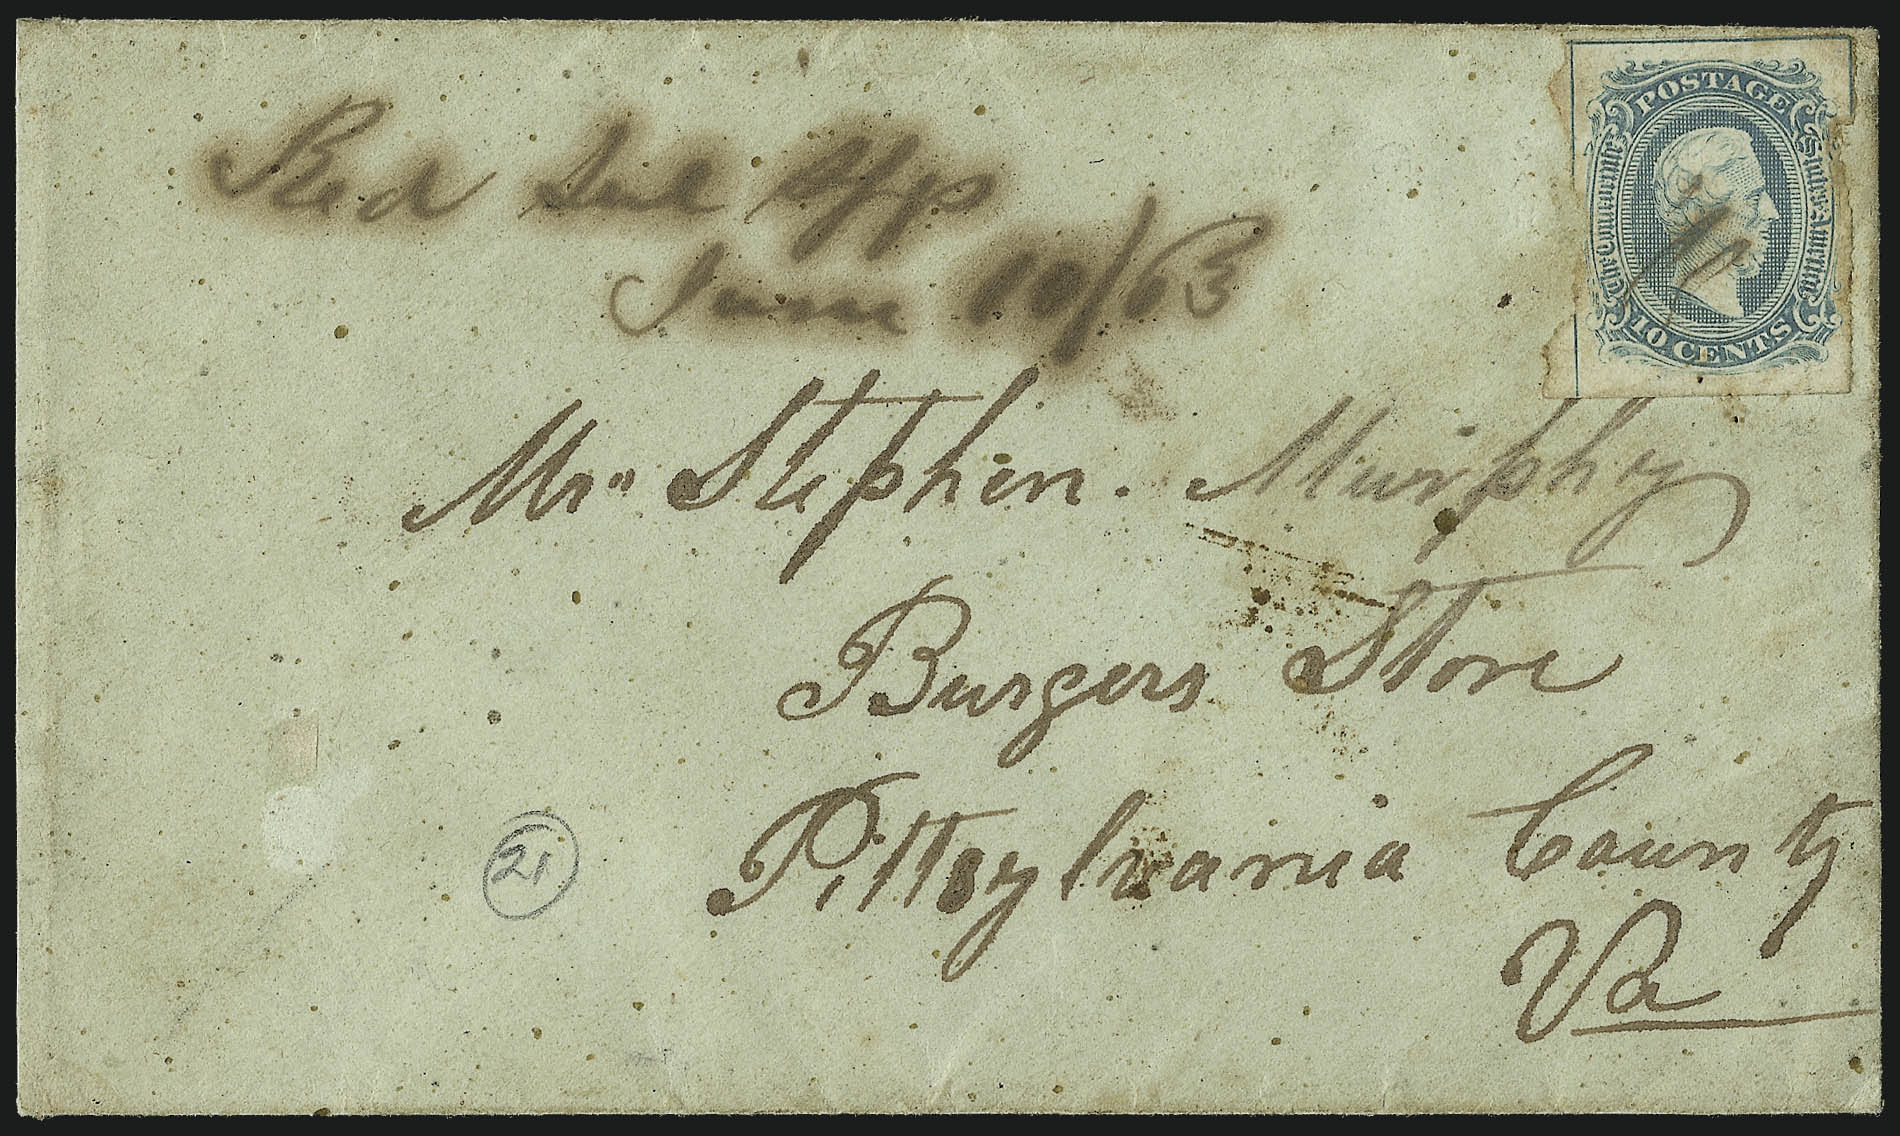 Red Sul Spgs
June 10/63
POSTAGE
The Confederate States of America
10 CENTS
10
Mr" Stephen. Murphy
Burgers Store
Pittsylvania County
Va
21